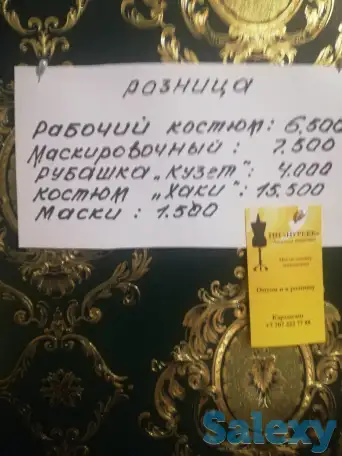 РОЗНИЦА
РАБОЧИЙ КОСТЮМ: 6.500
МАСКИРОВОЧНЫЙ: 7.500
РУБАШКА „КУЗЕТ": 4.000
КОСТЮМ „ХАКИ": 15.500
МАСКИ: 1.500
Оптом и в розницу
Salexy